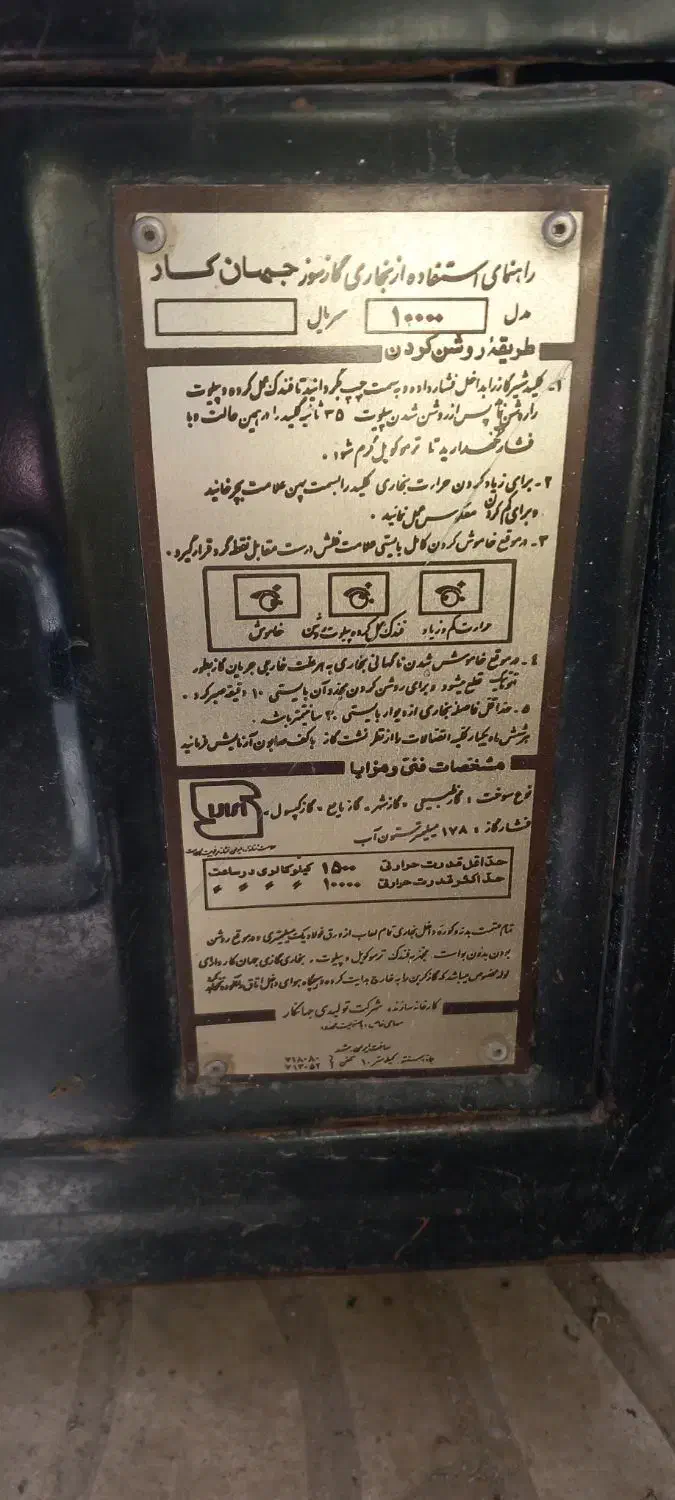 راهنمای استفاده از بخاری گازسوز جهان کار
مدل ۱۰۰۰۰ سریال
طریقهٔ روشن کردن
۱- کلید شیر گاز را بداخل فشار داده و به سمت چپ بگردانید تا فندک عمل کرده و پیلوت
را روشن پس از روشن شدن پیلوت ۳۵ ثانیه کلید را در همین حالت و با
فشار نگهدارید تا ترموکوپل گرم شود.
۲- برای زیاد کردن حرارت بخاری کلید را بسمت پهن علامت بچرخانید
و برای کم کردن معکوس عمل نمائید.
۳- در موقع خاموش کردن کامل بایستی علامت فلش درست مقابل نقطه گرد قرار گیرد.
حرارت کم و زیاد
فندک عمل کرده و پیلوت روشن
خاموش
۴- در موقع خاموش شدن ناگهانی بخاری به هر علت خارجی جریان گاز بطور
اتوماتیک قطع میشود و برای روشن کردن مجدد آن بایستی ۱۰ دقیقه صبر کرد.
۵- حداقل فاصله بخاری از دیوار بایستی ۲۰ سانتیمتر باشد.
هر شش ماه یکبار کلیه اتصالات را از نظر نشت گاز با کف صابون آزمایش فرمائید
مشخصات فنی و مزایا
نوع سوخت: گاز طبیعی - گاز شهر - گاز مایع - گاز کپسول -
فشار گاز: ۱۷۸ میلیمتر ستون آب
حداقل قدرت حرارتی ۱۵۰۰ کیلوکالری در ساعت
حداکثر قدرت حرارتی ۱۰۰۰۰ 〃 〃 〃 〃
تمام قسمت بدنه و کوره داخل بخاری تمام لعاب از ورق فولاد یک میلیمتری و در موقع روشن
بودن بدون بو است. مجهز به فندک ترموکوپل و پیلوت - بخاری گازی جهان کار دارای
لوله مخصوص میباشد که گاز کربن را به خارج هدایت کرده و هیچگاه هوای داخل اتاق
کارخانه سازنده شرکت تولیدی جهانکار
سهامی خاص
ساخت ایران
کیلومتر ۱۰ تلفن ۷۱۸۰۸۰
۷۱۳۰۵۲